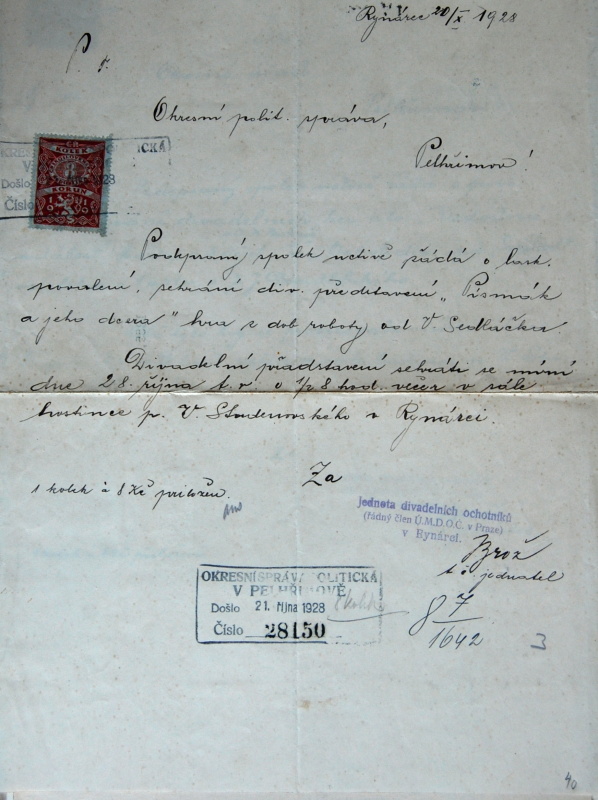 Rynárec 20/X 1928
P. T.
Okresní polit. správa,
Pelhřimov!
KOLEK
KORUN
Došlo 1928
Číslo
Podepsaný spolek uctivě žádá o lask.
povolení, sehrání div. představení „Písmák
a jeho dcera" hra z dob roboty od V. Sedláčka.
Divadelní představení sehráti se míní
dne 28. října t. r. o 1/2 8 hod. večer v sále
hostince p. V. Studenovského v Rynárci.
1 kolek à 8 Kč přiložen.
Za
jednota divadelních ochotníků
(řádný člen Ú.M.D.O.Č. v Praze)
v Rynárci.
Brož
t. č. jednatel
OKRESNÍ SPRÁVA POLITICKÁ
V PELHŘIMOVĚ
Došlo 21. října 1928
Číslo 28150
8 7
1642
3
40